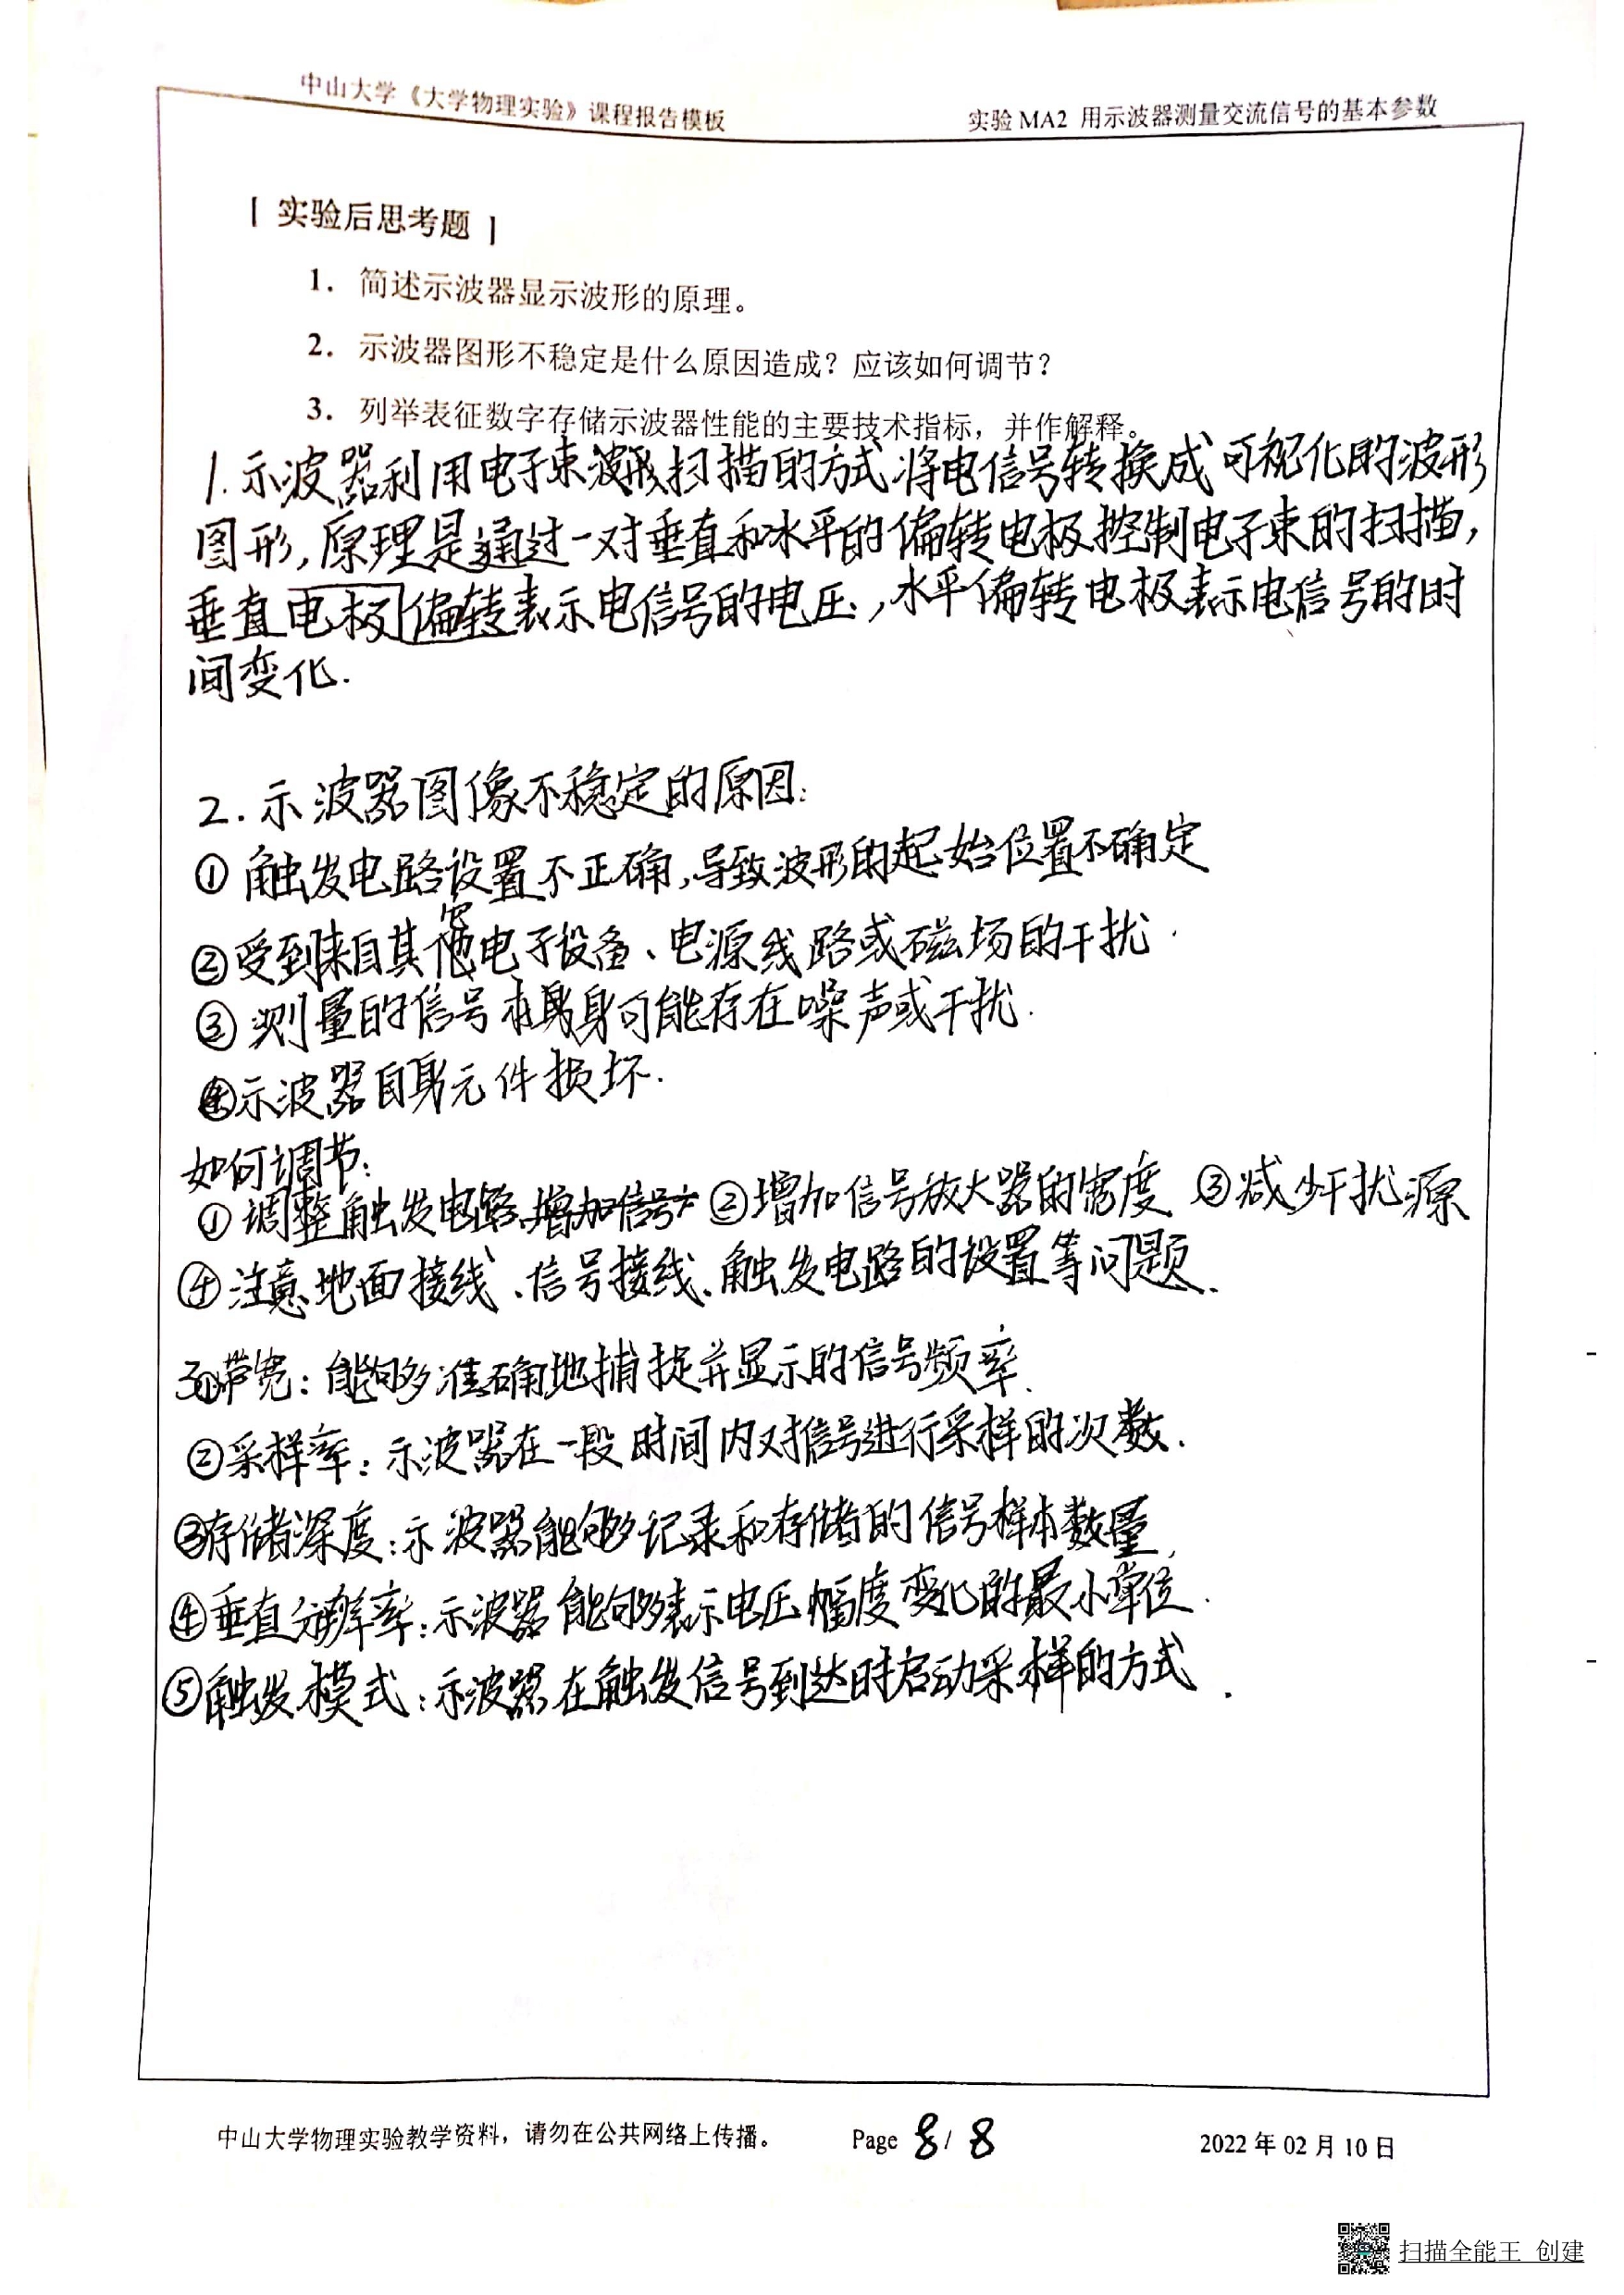 中山大学《大学物理实验》课程报告模板 实验 MA2 用示波器测量交流信号的基本参数
[ 实验后思考题 ]
1. 简述示波器显示波形的原理。
2. 示波器图形不稳定是什么原因造成？应该如何调节？
3. 列举表征数字存储示波器性能的主要技术指标，并作解释。
1. 示波器利用电子束扫描的方式将电信号转换成可视化的波形
图形,原理是通过一对垂直和水平的偏转电极控制电子束的扫描,
垂直电极偏转表示电信号的电压,水平偏转电极表示电信号的时
间变化.
2. 示波器图像不稳定的原因:
① 触发电路设置不正确,导致波形的起始位置不确定
②受到来自其他电子设备、电源线路或磁场的干扰.
③ 测量的信号本身可能存在噪声或干扰.
④示波器自身元件损坏.
如何调节:
① 调整触发电路 ②增加信号放大器的宽度 ③减少干扰源
④注意地面接线、信号接线、触发电路的设置等问题.
3.①带宽:能够准确地捕捉并显示的信号频率.
②采样率:示波器在一段时间内对信号进行采样的次数.
③存储深度:示波器能够记录和存储的信号样本数量,
④垂直分辨率:示波器能够表示电压幅度变化的最小单位.
⑤触发模式:示波器在触发信号到达时启动采样的方式.
中山大学物理实验教学资料，请勿在公共网络上传播。 Page 8 / 8 2022 年 02 月 10 日
扫描全能王 创建